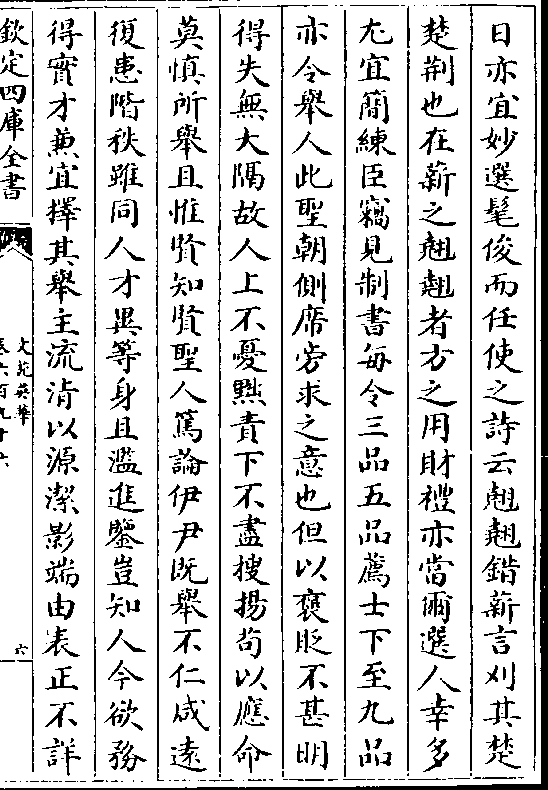 日亦宜妙選髦俊而任使之詩云翹翹錯薪言刈其楚
楚荆也在薪之翹翹者方之用財禮亦當爾選人幸多
尤宜簡練臣竊見制書每令三品五品薦士下至九品
亦令舉人此聖朝側席旁求之意也但以襃貶不甚明
得失無大隔故人上不憂黜責下不盡搜揚茍以應命
莫慎所舉且惟賢知賢聖人篤論伊尹既舉不仁咸遠
復患階秩雖同人才異等身且濫進鑒豈知人今欲務
得實才兼宜擇其舉主流清以源潔影端由表正不詳
欽定四庫全書
文苑英華
卷六百九十六
六